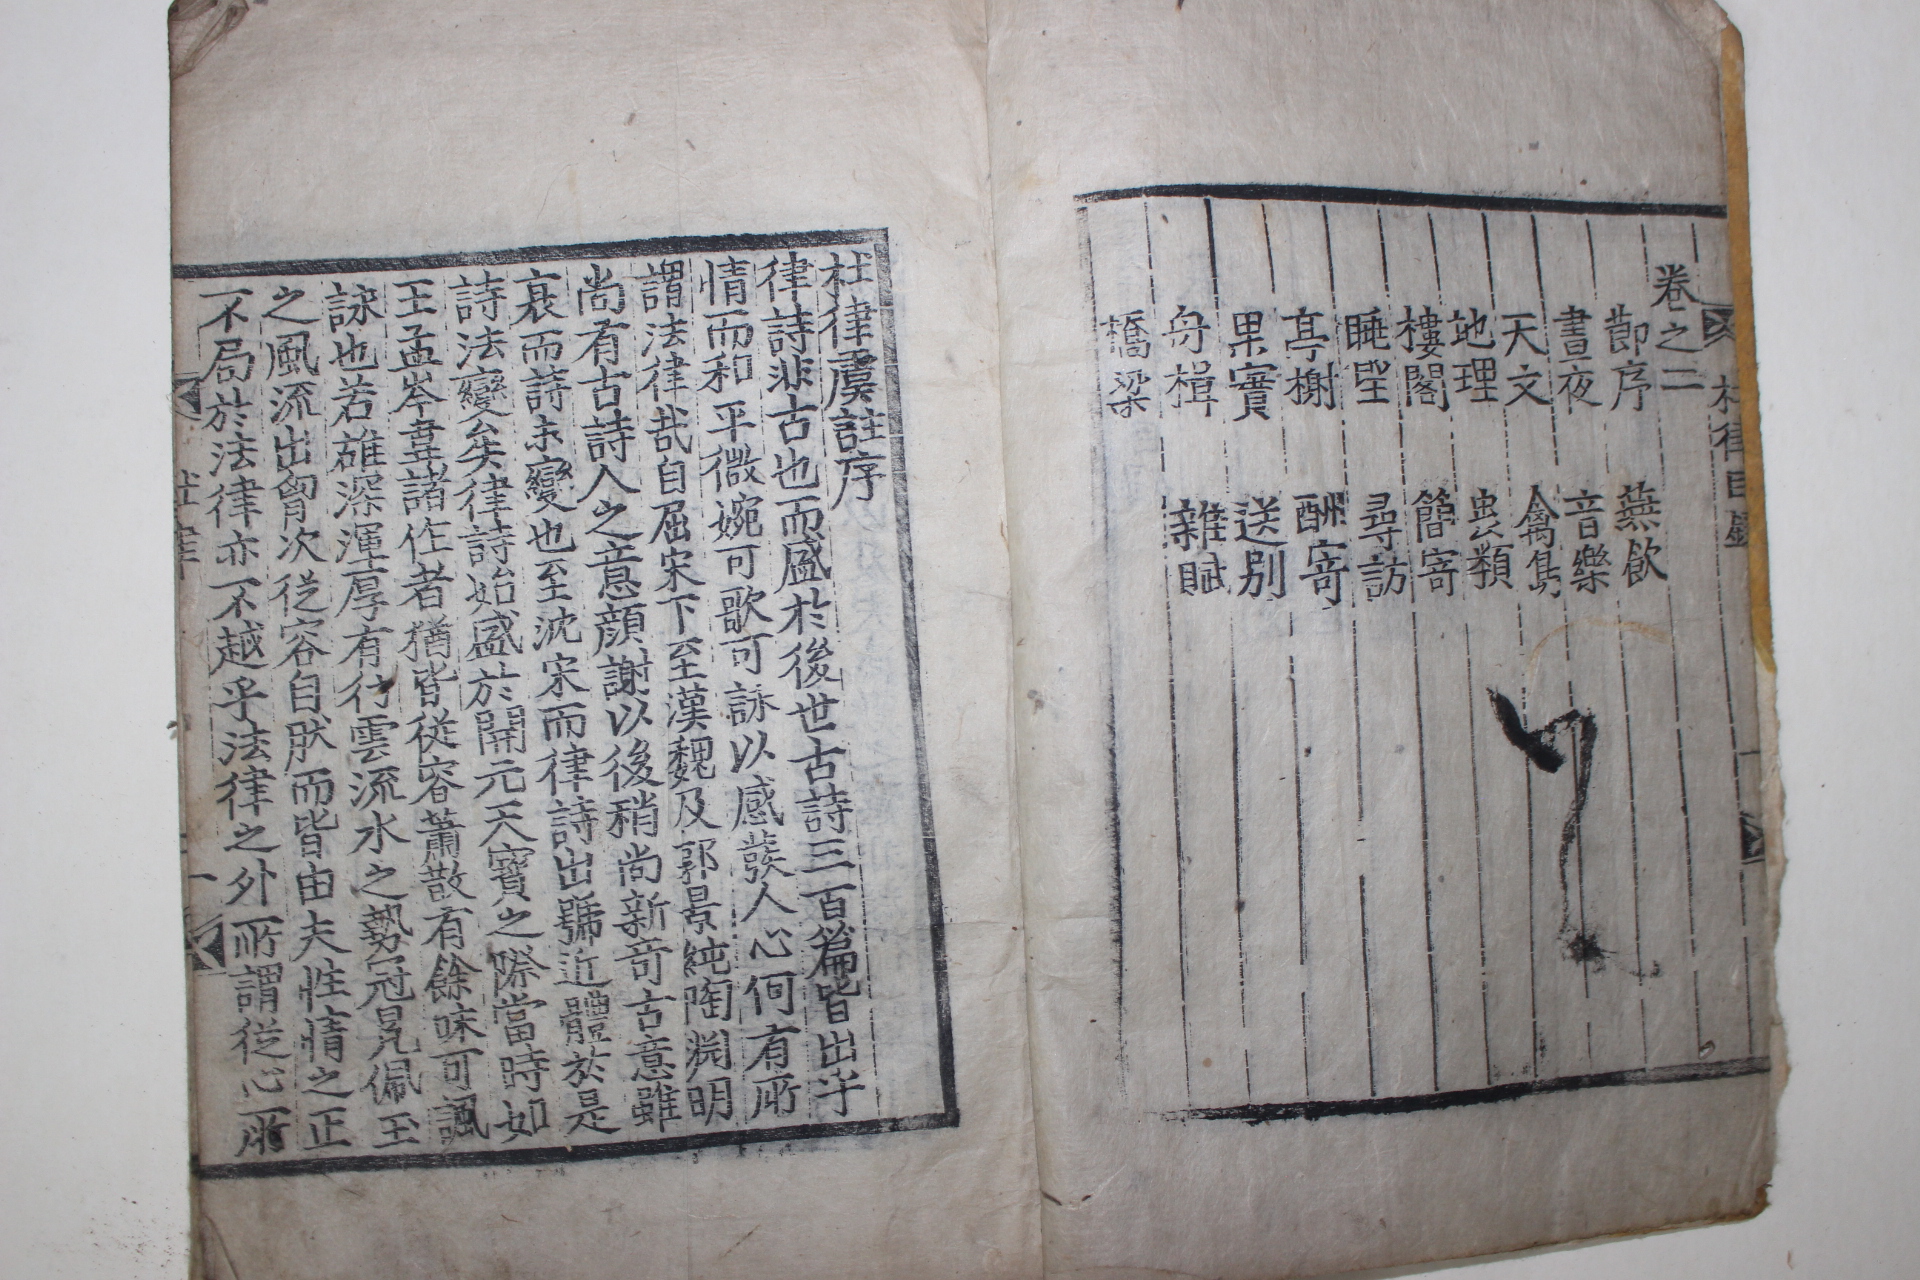 卷之二
節序　燕飲
晝夜　音樂
天文　禽鳥
地理　虫類
樓閣　簡寄
眺望　尋訪
亭榭　酬寄
果實　送別
舟楫　雜賦
橋梁
杜律目錄
杜律虞註序
律詩非古也而盛於後世古詩三百篇皆出乎
情而和平微婉可歌可詠以感發人心何有所
謂法律哉自屈宋下至漢魏及郭景純陶淵明
尚有古詩人之意顔謝以後稍尚新奇古意雖
衰而詩未變也至沈宋而律詩出號近體於是
詩法變矣律詩始盛於開元天寶之際當時如
王孟岑韋諸作者猶皆從容蕭散有餘味可諷
詠也若雄深渾厚有行雲流水之勢冠冕佩玉
之風流出胷次從容自肰而皆由夫性情之正
不局於法律亦不越乎法律之外所謂從心所
杜律